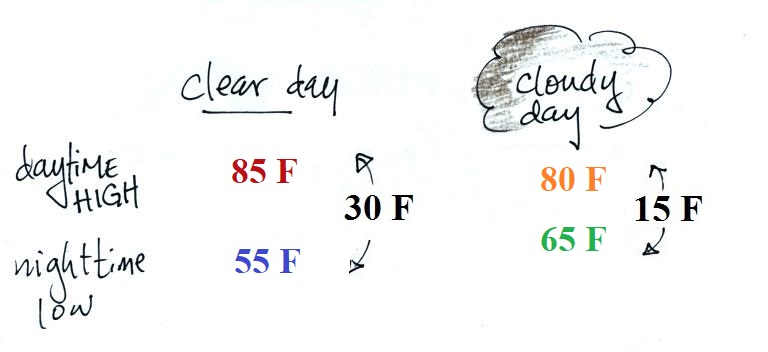 clear day
cloudy
day
daytime
HIGH
85 F
30 F
80 F
15 F
nighttime
low
55 F
65 F